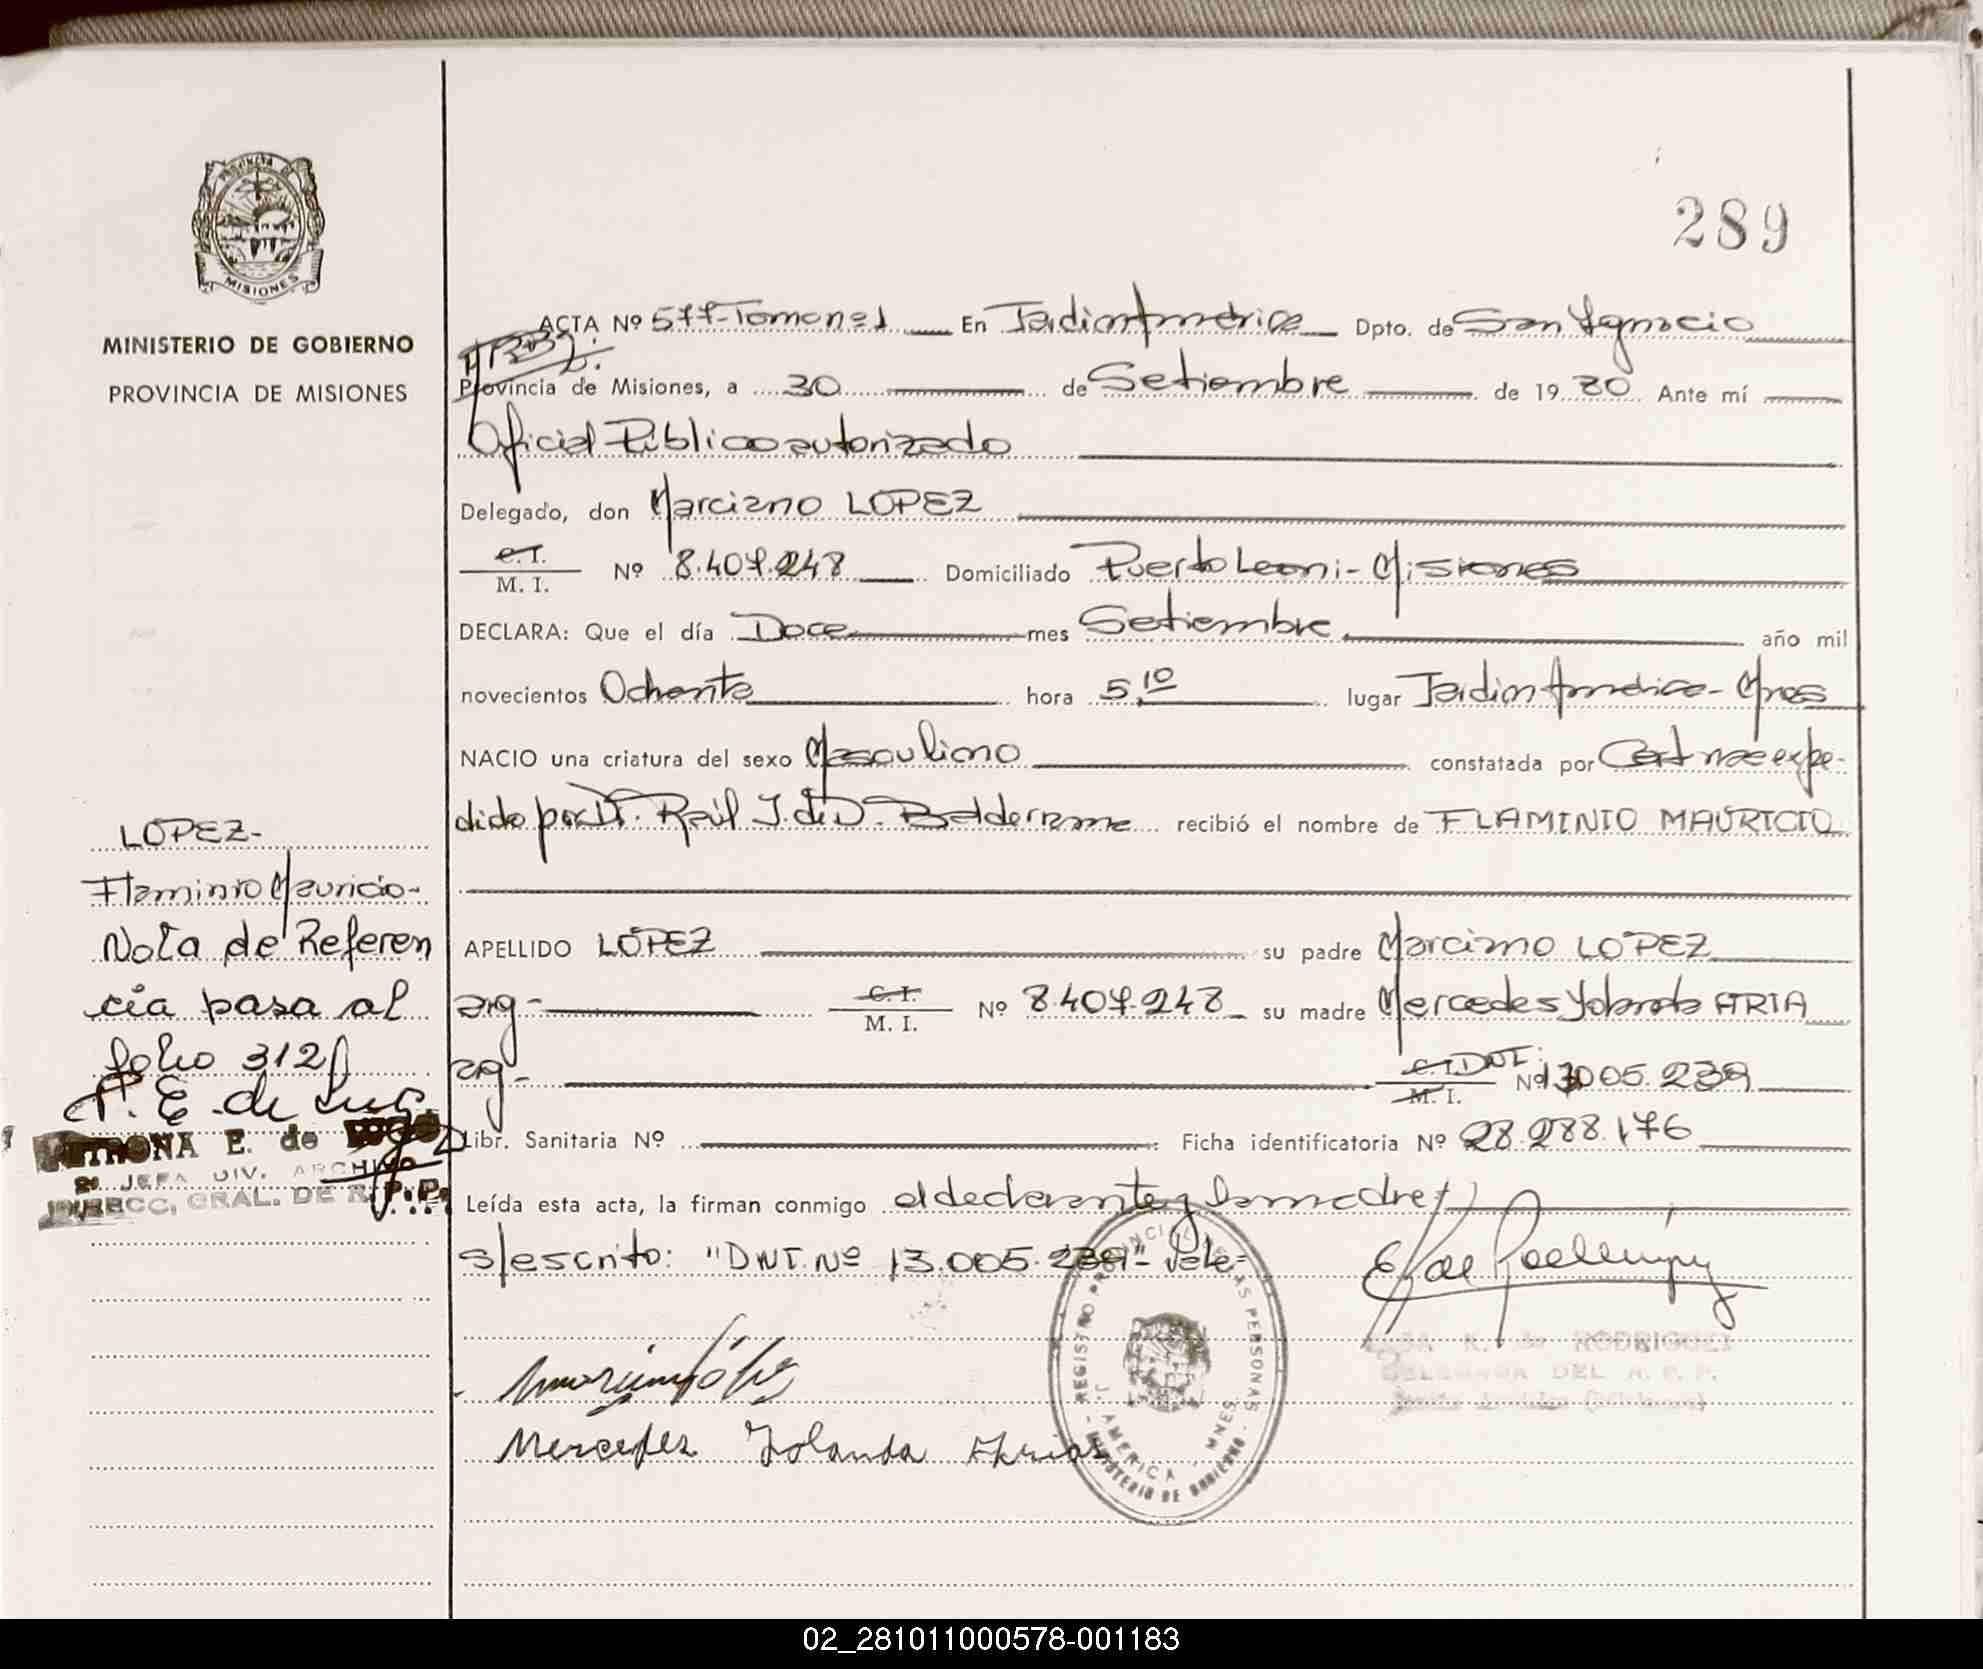 289
PROVINCIA DE
MISIONES
MINISTERIO DE GOBIERNO
PROVINCIA DE MISIONES
ACTA Nº 577-Tomo nº1 En Jardin America Dpto. de San Ignacio
Provincia de Misiones, a 30 de Setiembre de 1980 Ante mí
Oficial Público autorizado
Delegado, don Marciano LOPEZ
C. I.
M. I. Nº 8.407.248 Domiciliado Puerto Leoni - Misiones
DECLARA: Que el día Doce mes Setiembre año mil
novecientos Ochenta hora 5,10 lugar Jardin America - Mnes
NACIO una criatura del sexo Masculino constatada por Cert nac expe-
dido por Dr. Raúl J. de D. Balderrama recibió el nombre de FLAMINIO MAURICIO
APELLIDO LOPEZ su padre Marciano LOPEZ
arg- C. I.
M. I. Nº 8.407.248 su madre Mercedes Yolanda ARIA
arg- C. I. DNI:
M. I. Nº 13.005.239
Libr. Sanitaria Nº Ficha identificatoria Nº 28.288.176
Leída esta acta, la firman conmigo el declarante y la madre
s/escrito: "DNI. Nº 13.005.239"- Vale=
Mercedes Yolanda Arias
REGISTRO PROVINCIAL DE LAS PERSONAS
J. AMERICA - MNES.
MINISTERIO DE GOBIERNO
K. de RODRIGUEZ
DELEGADA DEL R. P. P.
LOPEZ-
Flaminio Mauricio-
Nota de Referen
cia pasa al
folio 312
P. E. de Lugo
PETRONA E. de LUGO
JEFA DIV. ARCHIVO
DIRECC. GRAL. DE R. P. P.
02_281011000578-001183